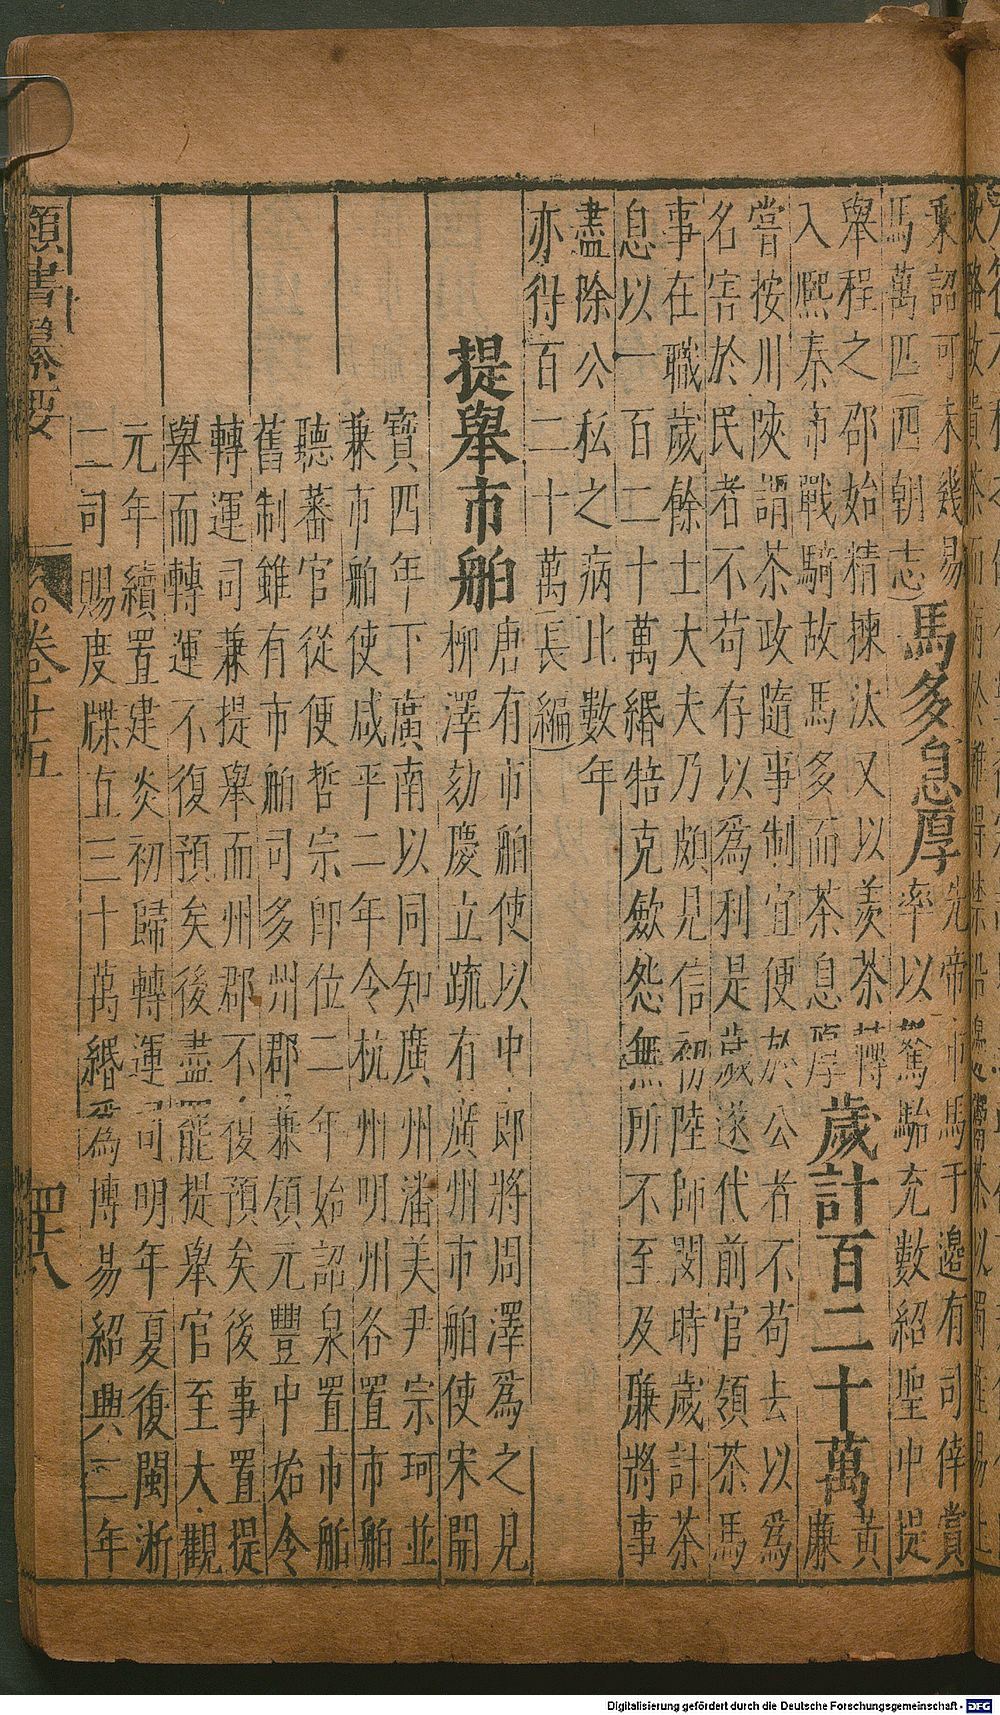 乘詔可未幾易
馬萬匹四朝志
馬多息厚
先帝市馬于邊有司倖賞
率以駑駘充數紹聖中提
舉程之邵始精揀汰又以羨茶轉
入熈秦市戰騎故馬多而茶息厚
歲計百二十萬
黃
廉
嘗按川陝謂茶政隨事制宜便於公者不苟去以爲
名害於民者不苟存以爲利是歲遂代前官領茶馬
事在職歲餘士大夫乃頗見信初陸師閔時歲計茶
息以一百二十萬緡牿克歛怨無所不至及廉將事
盡除公私之病比數年
亦得百二十萬長編
提舉市舶
唐有市舶使以中郎將周澤爲之見
柳澤劾慶立疏有廣州市舶使宋開
寶四年下廣南以同知廣州潘美尹宗珂並
兼市舶使咸平二年令杭州明州各置市舶
聽蕃官從便哲宗卽位二年始詔泉置市舶
舊制雖有市舶司多州郡兼領元豐中始令
轉運司兼提舉而州郡不復預矣後事置提
舉而轉運不復預矣後盡罷提舉官至大觀
元年續置建炎初歸轉運司明年夏復閩浙
二司賜度牒直三十萬緡爲博易紹興二年
類書纂要
卷十五
四十八
Digitalisierung gefördert durch die Deutsche Forschungsgemeinschaft - DFG